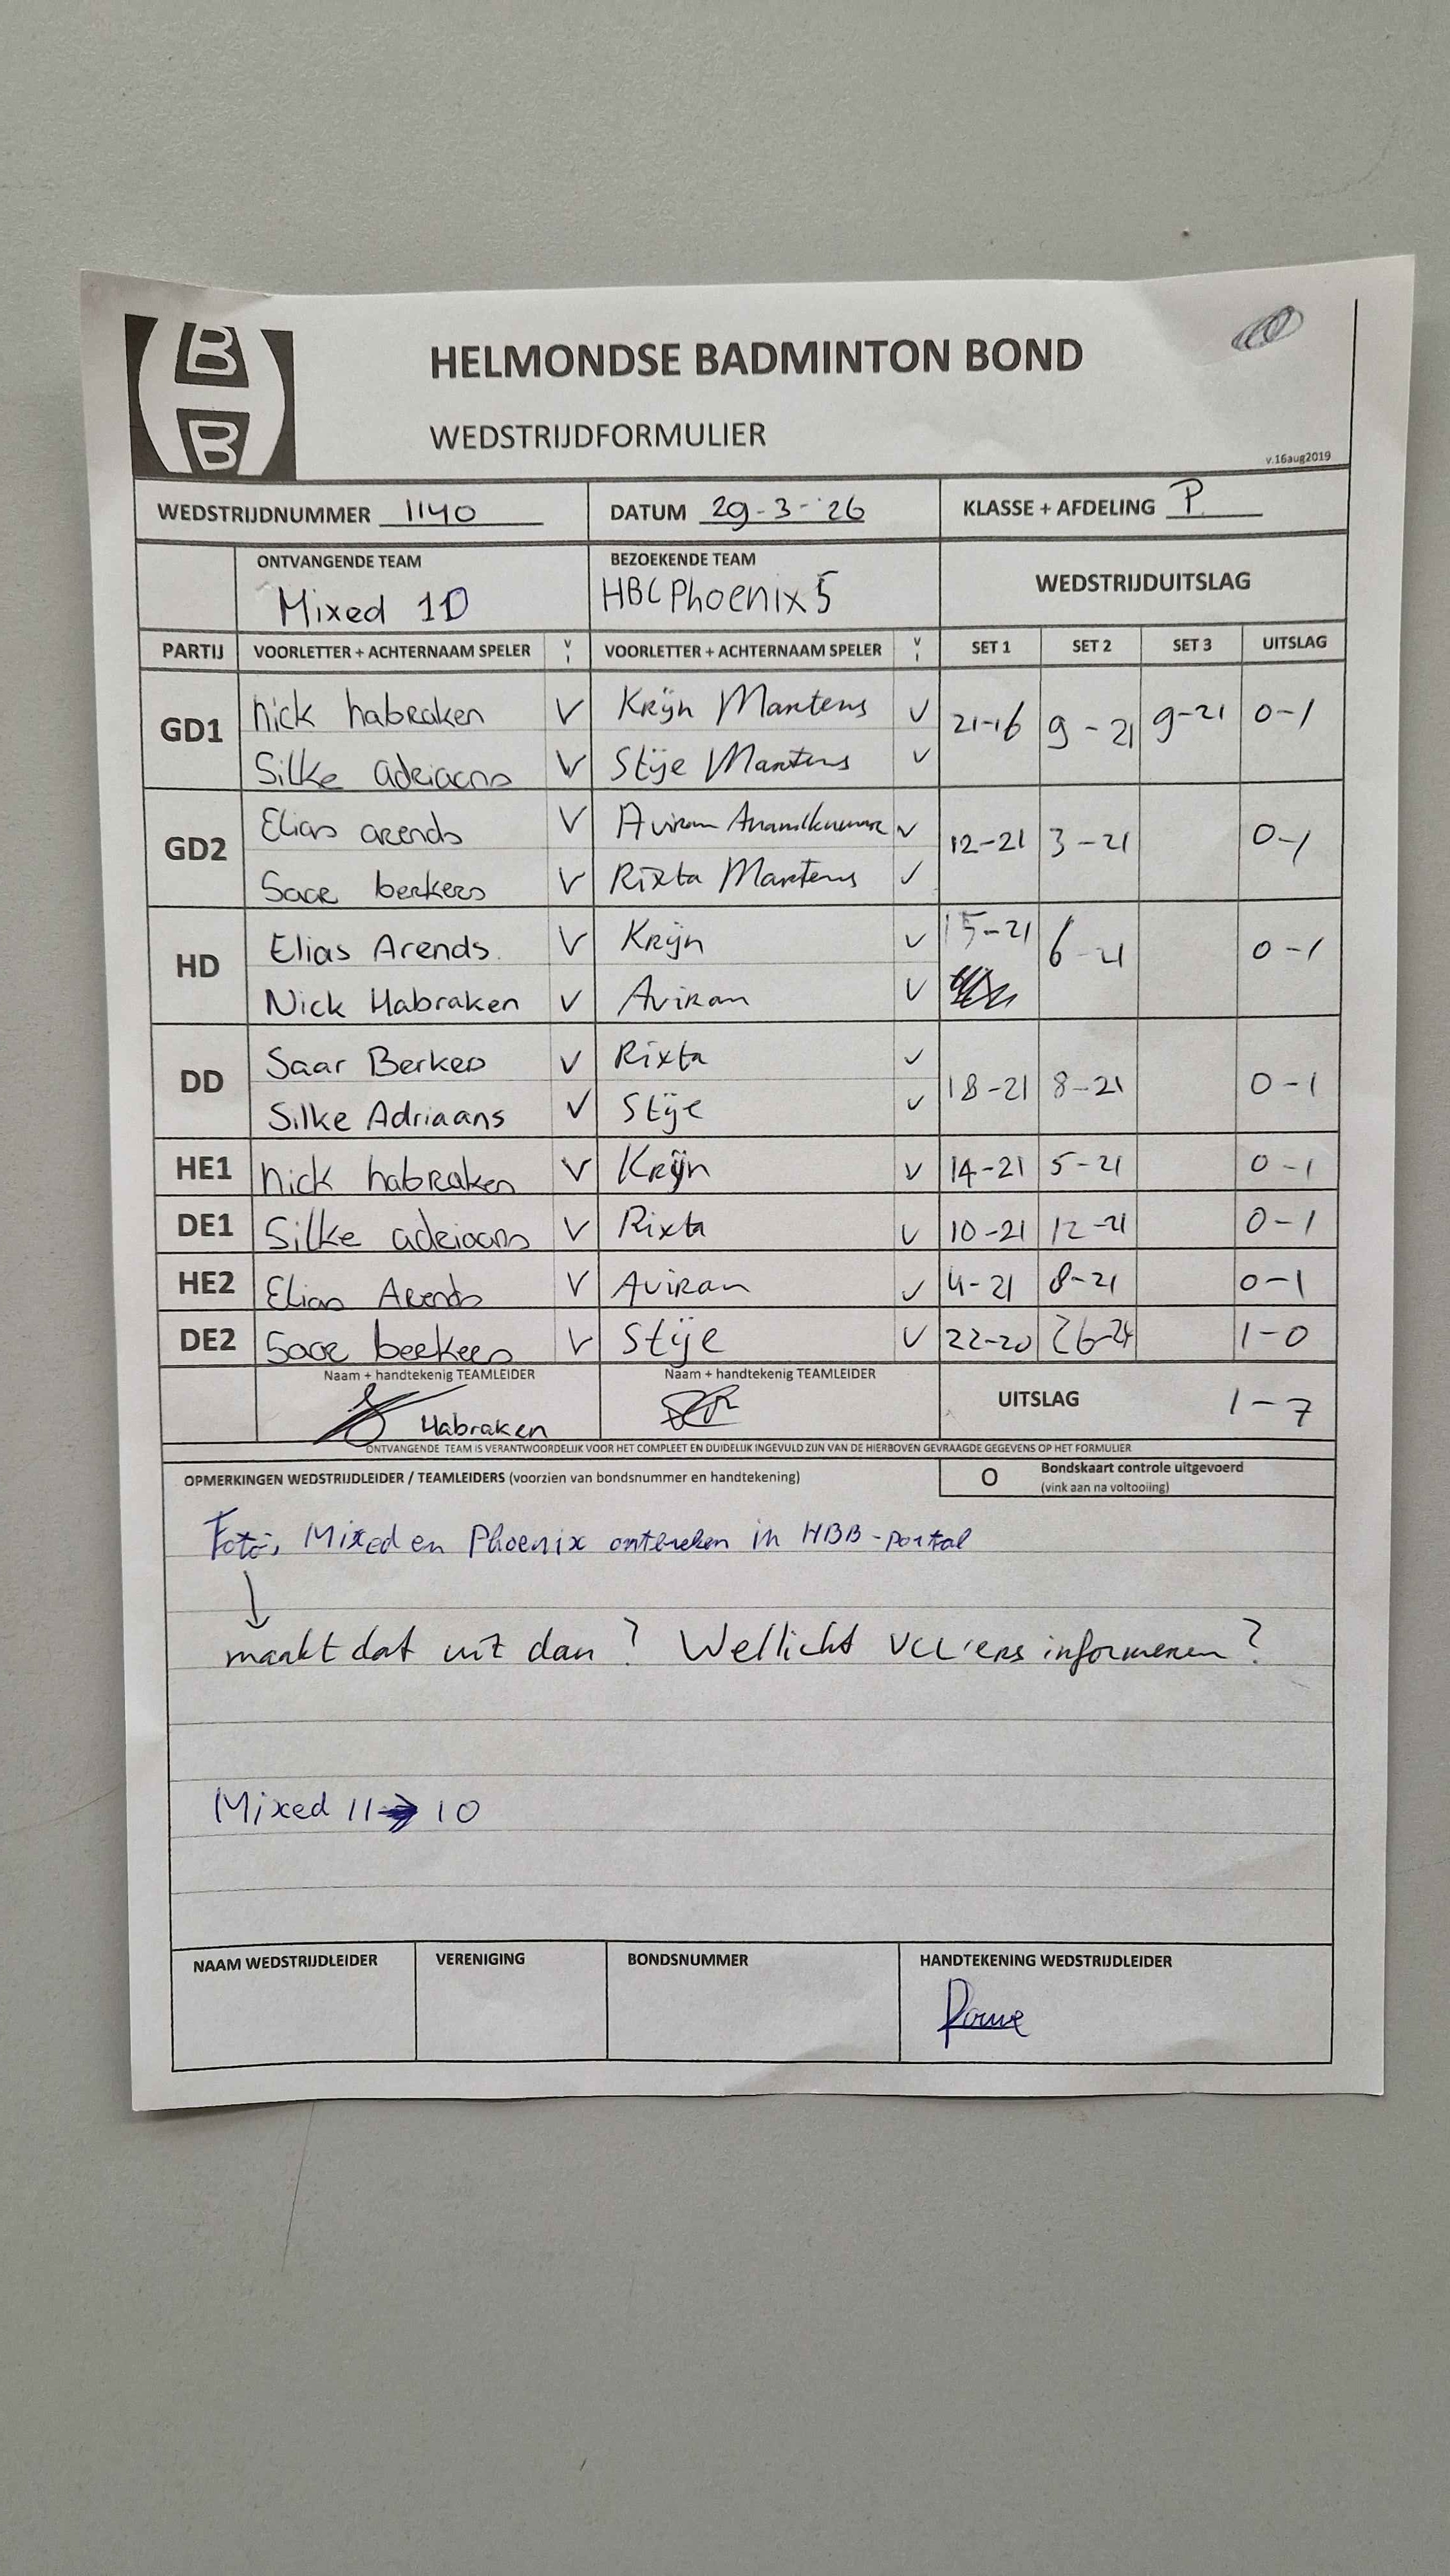 B
B
HELMONDSE BADMINTON BOND
WEDSTRIJDFORMULIER
v.16aug2019
WEDSTRIJDNUMMER 1140 DATUM 29-3-'26 KLASSE + AFDELING P.
ONTVANGENDE TEAM BEZOEKENDE TEAM WEDSTRIJDUITSLAG
Mixed 10 HBC Phoenix 5
PARTIJ VOORLETTER + ACHTERNAAM SPELER V VOORLETTER + ACHTERNAAM SPELER V SET 1 SET 2 SET 3 UITSLAG
GD1 nick habraken V Krijn Martens V 21-16 9-21 9-21 0-1
Silke adriaans V Stije Martens V
GD2 Elias arends V Aviran V 12-21 3-21 0-1
Saar berkers V Rixta Martens V
HD Elias Arends. V Krijn V 15-21 6-21 0-1
Nick Habraken V Aviran V
DD Saar Berkers V Rixta V 18-21 8-21 0-1
Silke Adriaans V Stije V
HE1 nick habraken V Krijn V 14-21 5-21 0-1
DE1 Silke adriaans V Rixta V 10-21 12-21 0-1
HE2 Elias Arends V Aviran V 4-21 8-21 0-1
DE2 Saar beekers V Stije V 22-20 26-24 1-0
Naam + handtekenig TEAMLEIDER Naam + handtekenig TEAMLEIDER UITSLAG 1-7
Habraken
ONTVANGENDE TEAM IS VERANTWOORDELIJK VOOR HET COMPLEET EN DUIDELIJK INGEVULD ZIJN VAN DE HIERBOVEN GEVRAAGDE GEGEVENS OP HET FORMULIER
OPMERKINGEN WEDSTRIJDLEIDER / TEAMLEIDERS (voorzien van bondsnummer en handtekening) O Bondskaart controle uitgevoerd
(vink aan na voltooiing)
Foto's Mixed en Phoenix ontbreken in HBB-portal
maakt dat uit dan? Wellicht VCL'ers informeren?
Mixed 11 → 10
NAAM WEDSTRIJDLEIDER VERENIGING BONDSNUMMER HANDTEKENING WEDSTRIJDLEIDER